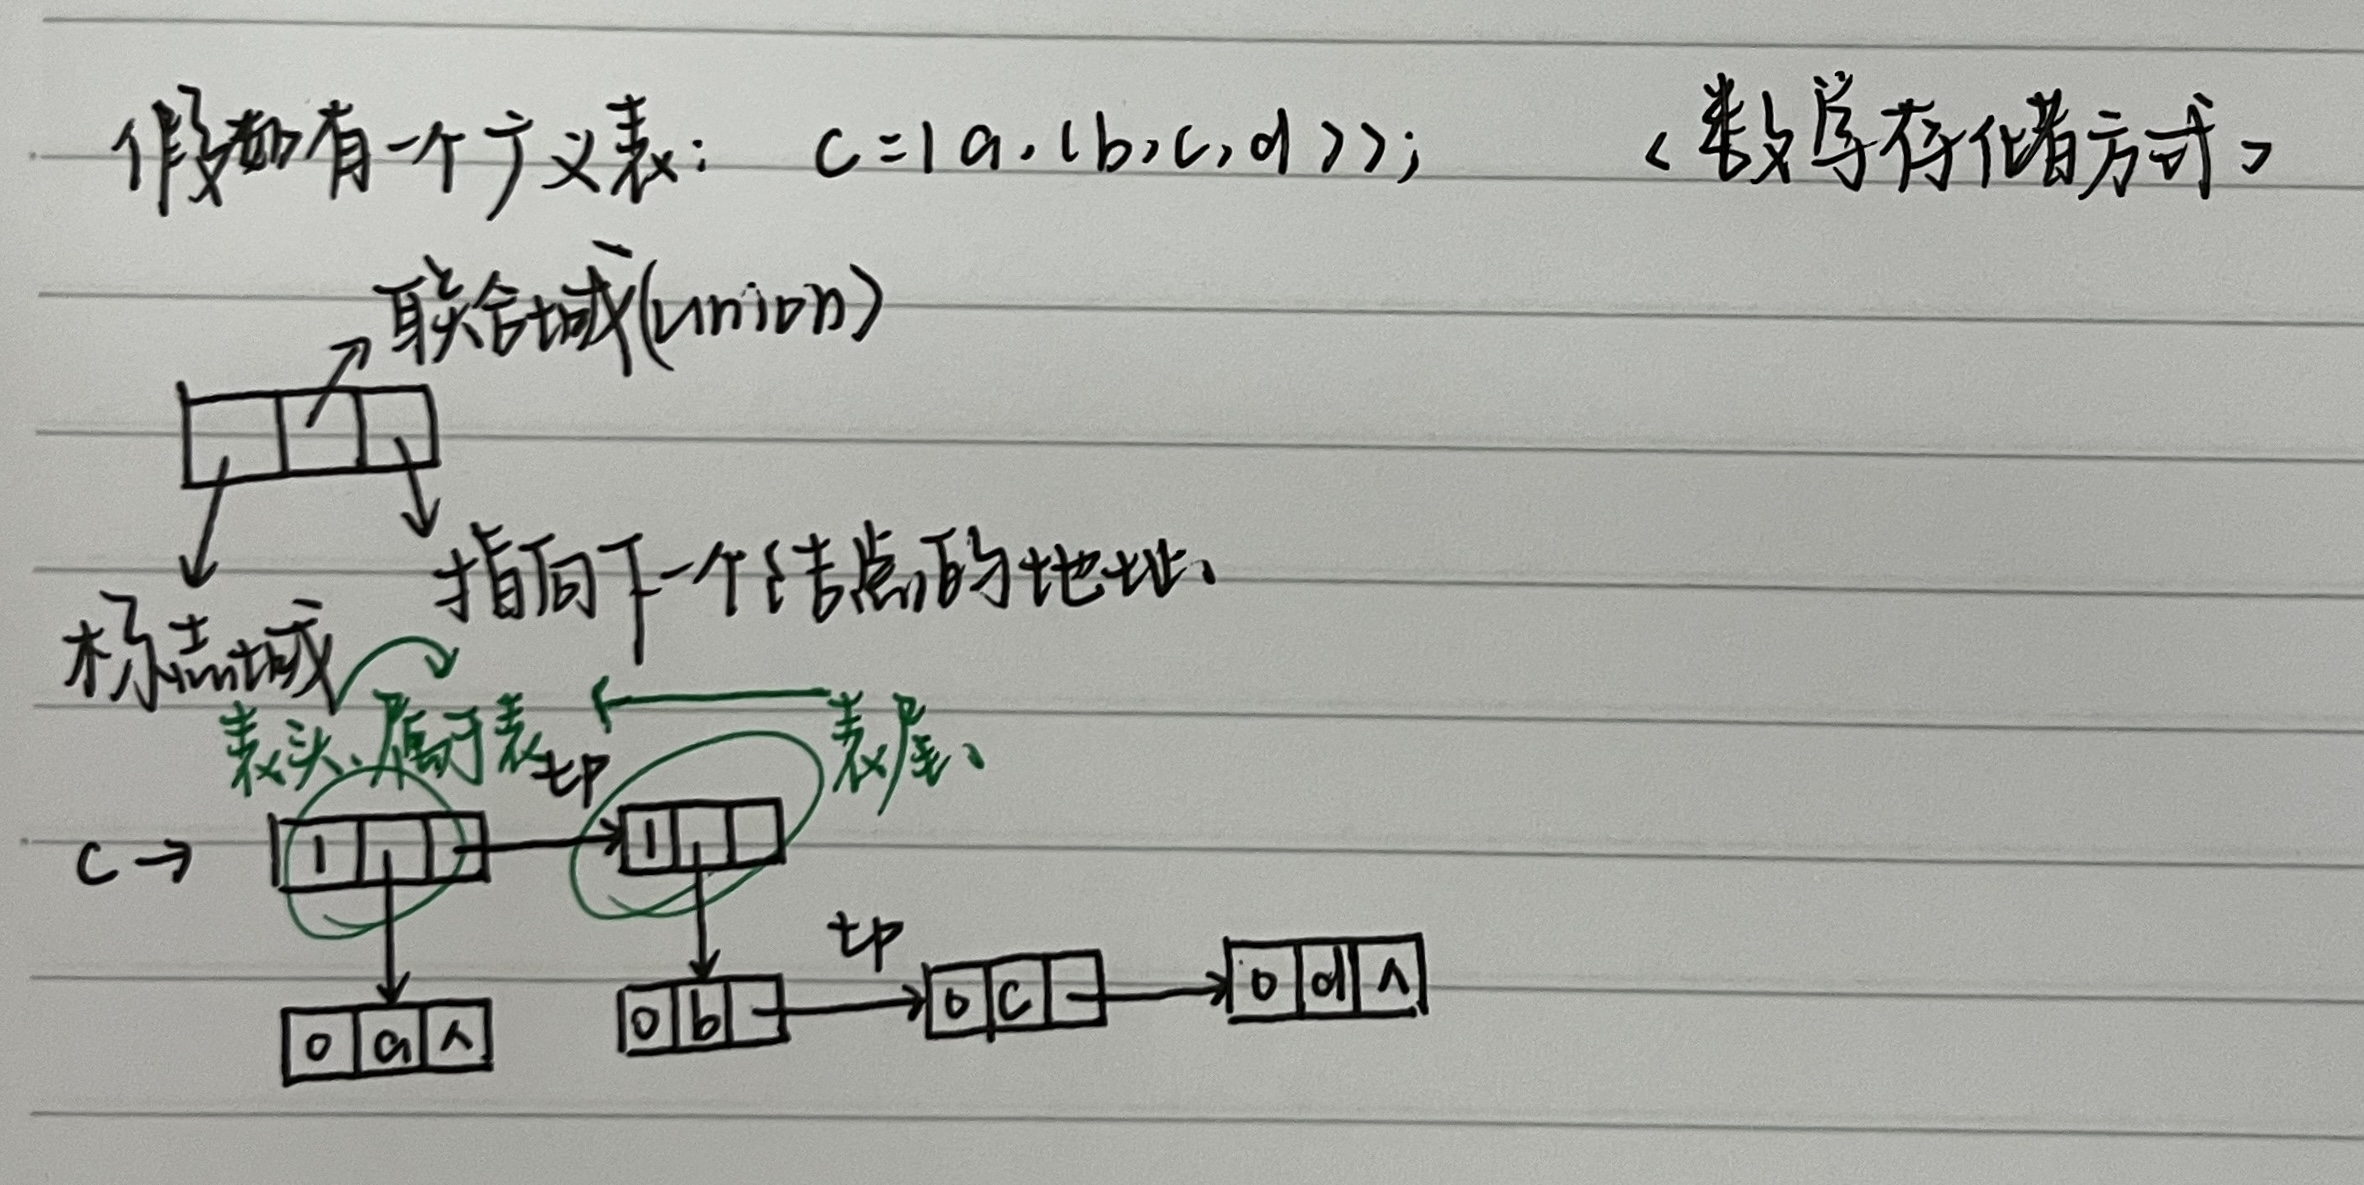 假如有一个广义表： C=(a,(b,c,d)); <数学存储方式>
联合域(union)
指向下一个结点的地址、
标志域
表头、属于表 表尾、
tp
C→ 1 1
tp
0 a ∧ 0 b 0 c 0 d ∧